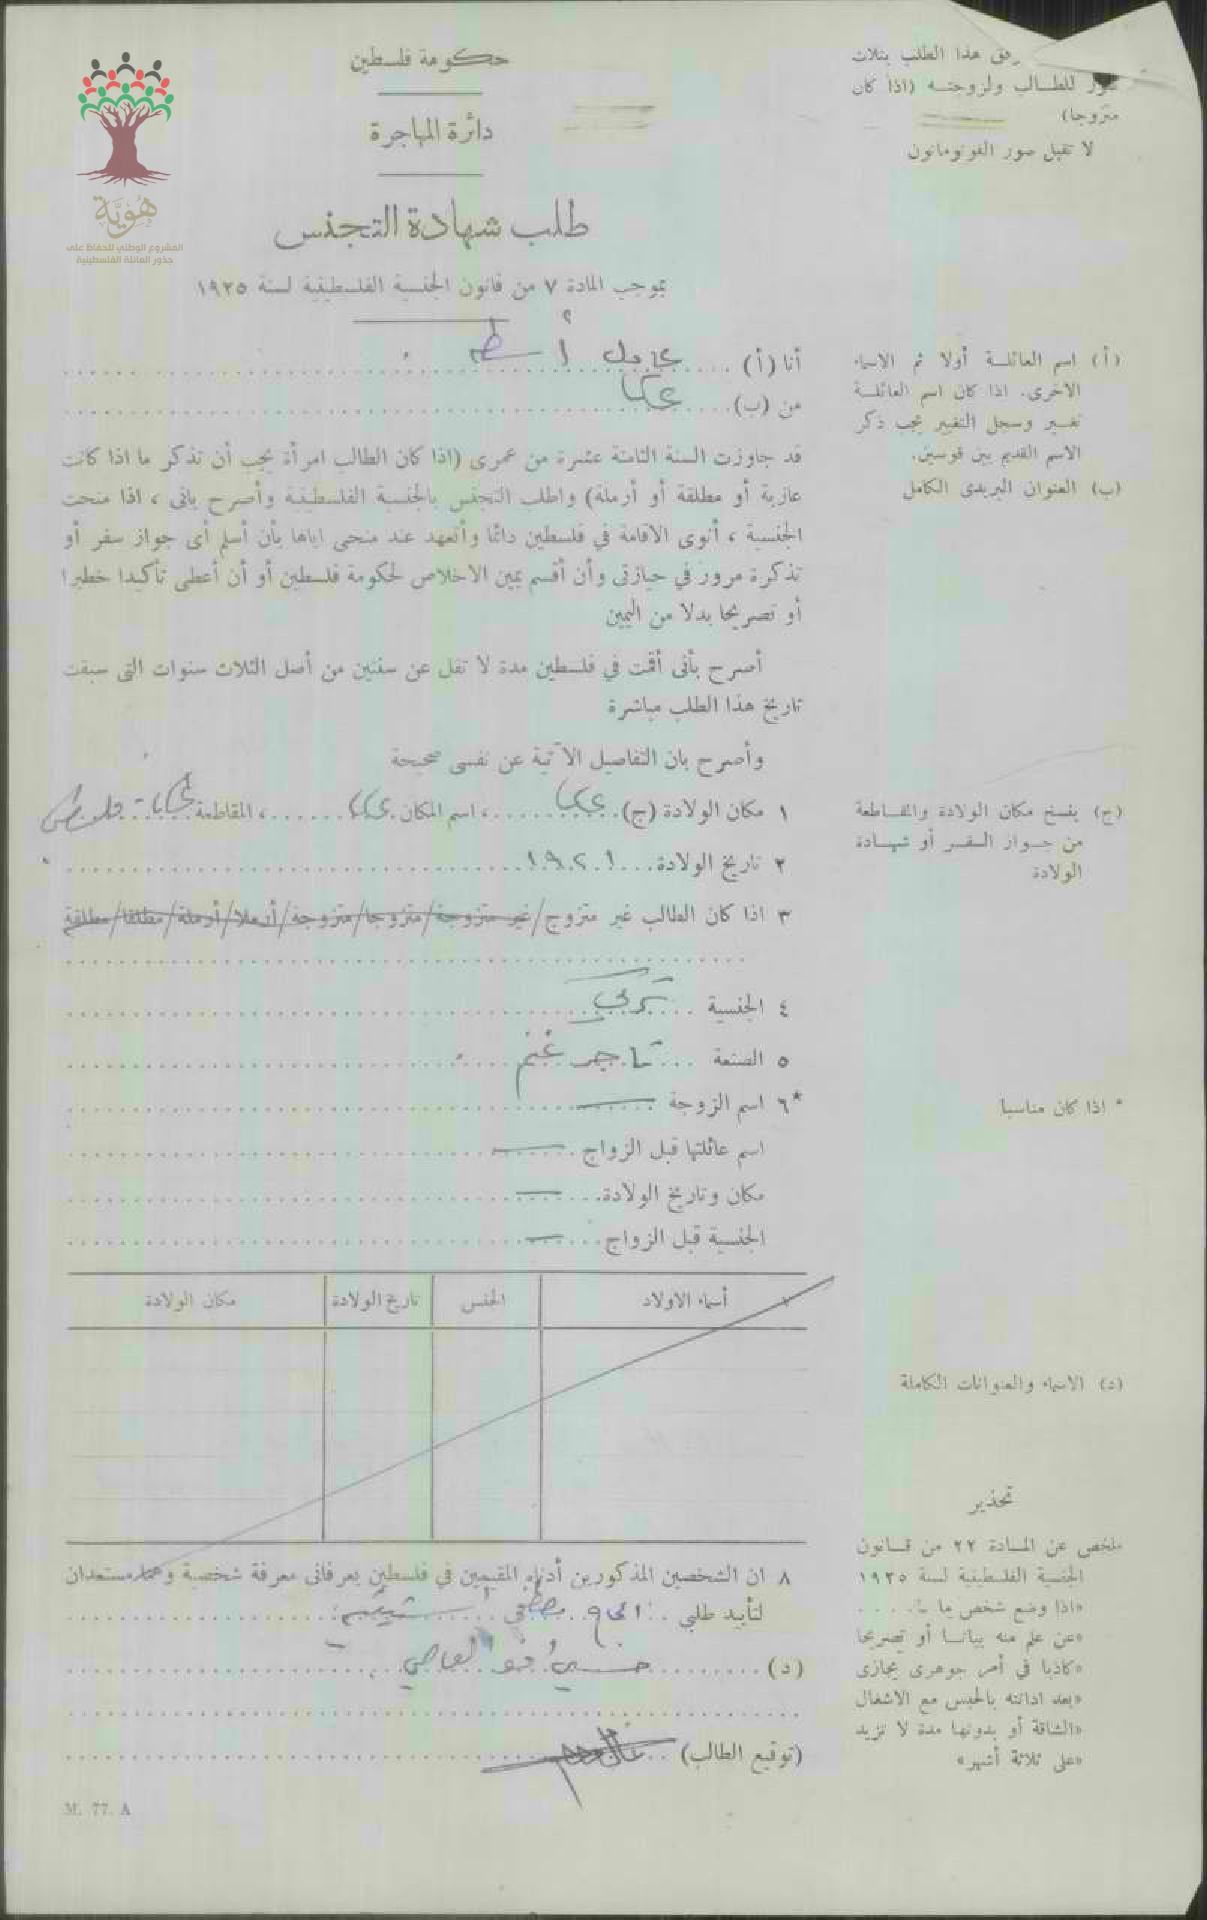 هُوِيَّة
المشروع الوطني للحفاظ على
جذور العائلة الفلسطينية
حكومة فلسطين
دائرة المهاجرة
طلب شهادة التجنس
بموجب المادة ٧ من قانون الجنسية الفلسطينية لسنة ١٩٢٥
هذا الطلب بثلاث
صور للطالب ولزوجته (اذا كان
متزوجا)
لا تقبل صور الفوتوماتون
أنا (أ) عادل
من (ب) عكا
(أ) اسم العائلة أولا ثم الاسماء
الاخرى. اذا كان اسم العائلة
تغير وسجل التغيير يجب ذكر
الاسم القديم بين قوسين.
(ب) العنوان البريدى الكامل
قد جاوزت السنة الثامنة عشرة من عمرى (اذا كان الطالب امرأة يجب أن تذكر ما اذا كانت
عازبة أو مطلقة أو أرملة) واطلب التجنس بالجنسية الفلسطينية وأصرح بانى ، اذا منحت
الجنسية ، أنوى الاقامة في فلسطين دائما وأتعهد عند منحى اياها بأن أسلم أى جواز سفر أو
تذكرة مرور في حيازتى وأن أقسم يمين الاخلاص لحكومة فلسطين أو أن أعطى تأكيدا خطيرا
أو تصريحا بدلا من اليمين
أصرح بأنى أقمت في فلسطين مدة لا تقل عن سنتين من أصل الثلاث سنوات التى سبقت
تاريخ هذا الطلب مباشرة
وأصرح بان التفاصيل الآتية عن نفسى صحيحة
١ مكان الولادة (ج) عكا ، اسم المكان عكا ، المقاطعة فلسطين
(ج) ينسخ مكان الولادة والمقاطعة
من جواز السفر أو شهادة
الولادة
٢ تاريخ الولادة ١٩٢١
٣ اذا كان الطالب غير متزوج/غير متزوجة/متزوجا/متزوجة/أرملا/أرملة/مطلقا/مطلقة
٤ الجنسية تركي
٥ الصنعة تاجر غنم
*٦ اسم الزوجة
* اذا كان مناسبا
اسم عائلتها قبل الزواج
مكان وتاريخ الولادة
الجنسية قبل الزواج
٧ أسماء الاولاد الجنس تاريخ الولادة مكان الولادة
(د) الاسماء والعنوانات الكاملة
٨ ان الشخصين المذكورين أدناه المقيمين في فلسطين يعرفانى معرفة شخصية وهما مستعدان
لتأييد طلبي : الحاج مصطفى
(د) حسين
(توقيع الطالب)
تحذير
ملخص عن المادة ٢٢ من قانون
الجنسية الفلسطينية لسنة ١٩٢٥
«اذا وضع شخص ما
«عن علم منه بيانا أو تصريحا
«كاذبا في أمر جوهرى يجازى
«بعد ادانته بالحبس مع الاشغال
«الشاقة أو بدونها مدة لا تزيد
«على ثلاثة أشهر»
M. 77. A